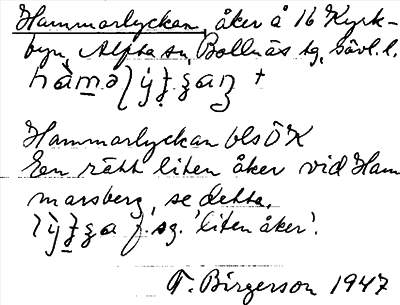 Hammarlyckan, åker å 16 Kyrk-
byn, Alfta sn, Bollnäs tg, Gävl. l.
Hammarlyckan bls ÖK
En rätt liten åker vid Ham
marsberg, se detta.
f. sg. 'liten åker'.
T. Birgerson 1947